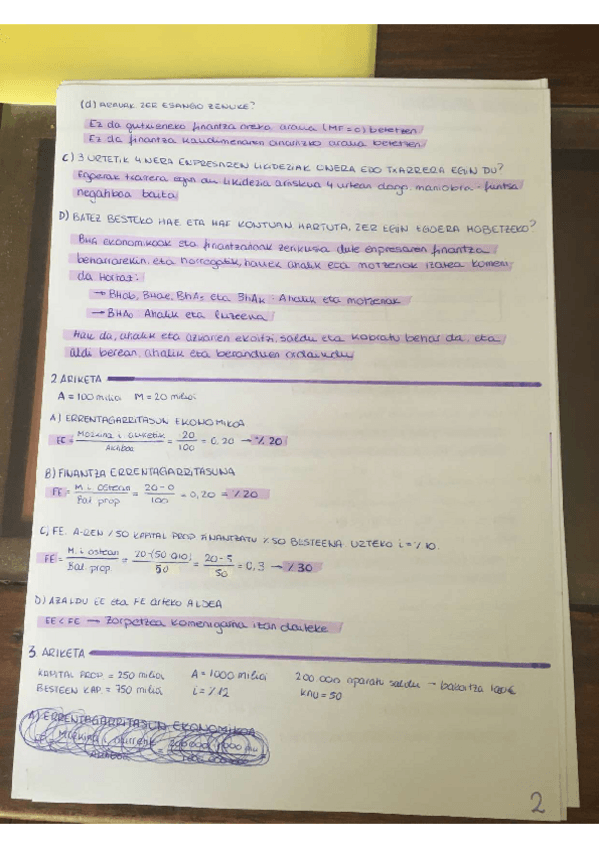 (d) ARAUAK ZER ESANGO ZENUKE?
Ez da gutxieneko finantza oreka araua (MF=0) betetzen
Ez da finantza kaudimenaren oinarrizko araua betetzen
C) 3 URTETIK 4.NERA ENPRESAREN LIKIDEZIAK ONERA EDO TXARRERA EGIN DU?
txarrera egin du likidezia arriskua 4 urtean dago. maniobra-funtsa
negatiboa baita
D) BATEZ BESTEKO HAE ETA HAF KONTUAN HARTUTA, ZER EGIN EGOERA HOBETZEKO?
BHA ekonomikoak eta finantzarioak zerikusia dute enpresaren finantza
beharrarekin, eta horregatik, hauek ahalik eta motzenak izatea komeni
da. Horretaz:
→ BHab, BHae, BHAs eta BHAk - Ahalik eta motzenak
→ BHAo Ahalik eta luzeena
Hau da, ahalik eta azkarren ekoitzi, saldu eta kobratu behar da, eta
aldi berean, ahalik eta beranduen ordaindu
2 ARIKETA
A = 100 milioi M = 20 milioi
A) ERRENTAGARRITASUN EKONOMIKOA
EE = Mozkina i. aurretik / Aktiboa = 20 / 100 = 0,20 → % 20
B) FINANTZA ERRENTAGARRITASUNA
FE = M. i. ostean / Bal. prop = 20-0 / 100 = 0,20 = % 20
C) FE. A-REN % 50 KAPITAL PROP FINANTZATU % 50 BESTEENA. UZTEKO i = % 10.
FE = M. i. ostean / Bal. prop. = 20-(50·0,10) / 50 = 20-5 / 50 = 0,3 → % 30
D) AZALDU EE eta FE arteko ALDEA
EE < FE → Zorpetzea komenigarria izan daiteke
3. ARIKETA
KAPITAL PROP = 250 milioi A = 1000 milioi 200 000 aparatu saldu → bakoitza 100€
BESTEEN KAP. = 750 milioi i = % 12 KAU = 50
A) ERRENTAGARRITASUN EKONOMIKOA
2